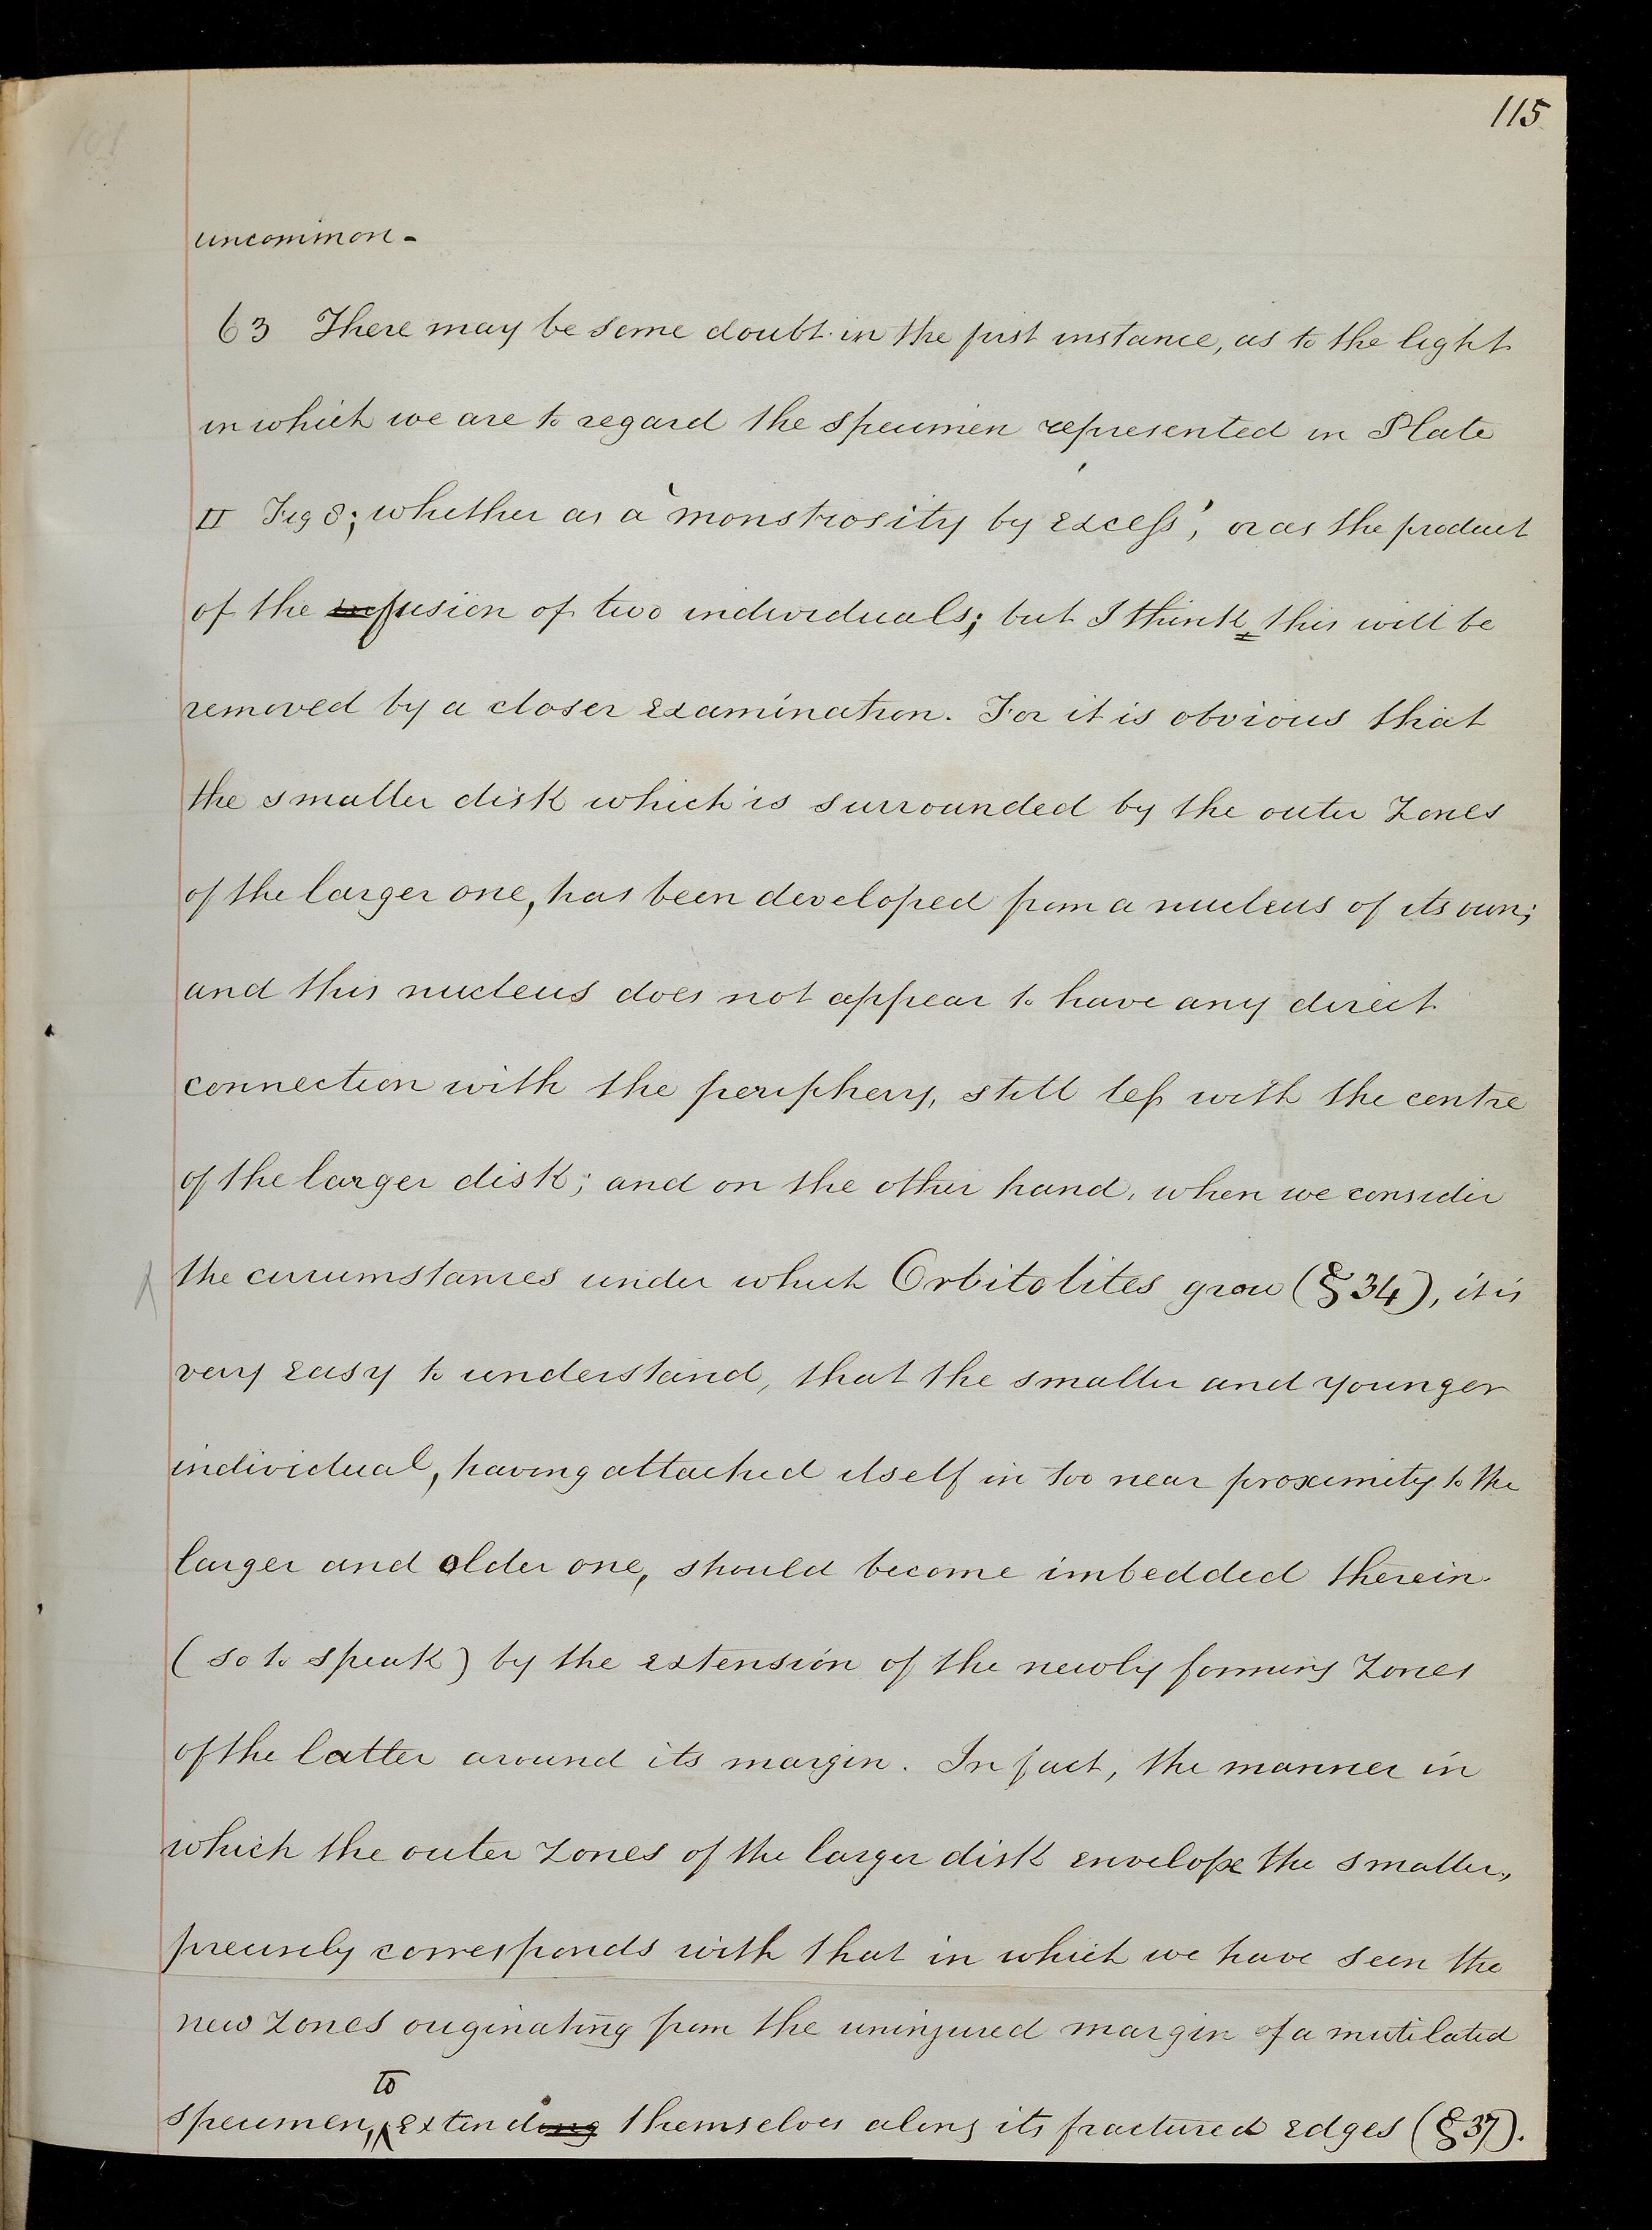 115
uncommon -
63 There may be some doubt in the first instance, as to the light
in which we are to regard the specimen represented in Plate
II Fig 8; whether as a 'monstrosity by excess', or as the product
of the fusion of two individuals; but I think this will be
removed by a closer examination. For it is obvious that
the smaller disk which is surrounded by the outer zones
of the larger one, has been developed from a nucleus of its own;
and this nucleus does not appear to have any direct
connection with the periphery, still less with the centre
of the larger disk; and on the other hand, when we consider
the circumstances under which Orbitolites grow (§ 34), it is
very easy to understand, that the smaller and younger
individual, having attached itself in too near proximity to the
larger and older one, should become imbedded therein
(so to speak) by the extension of the newly forming zones
of the latter around its margin. In fact, the manner in
which the outer zones of the larger disk envelope the smaller,
precisely corresponds with that in which we have seen the
new zones originating from the uninjured margin of a mutilated
to
specimen, extending themselves along its fractured edges (§ 37).